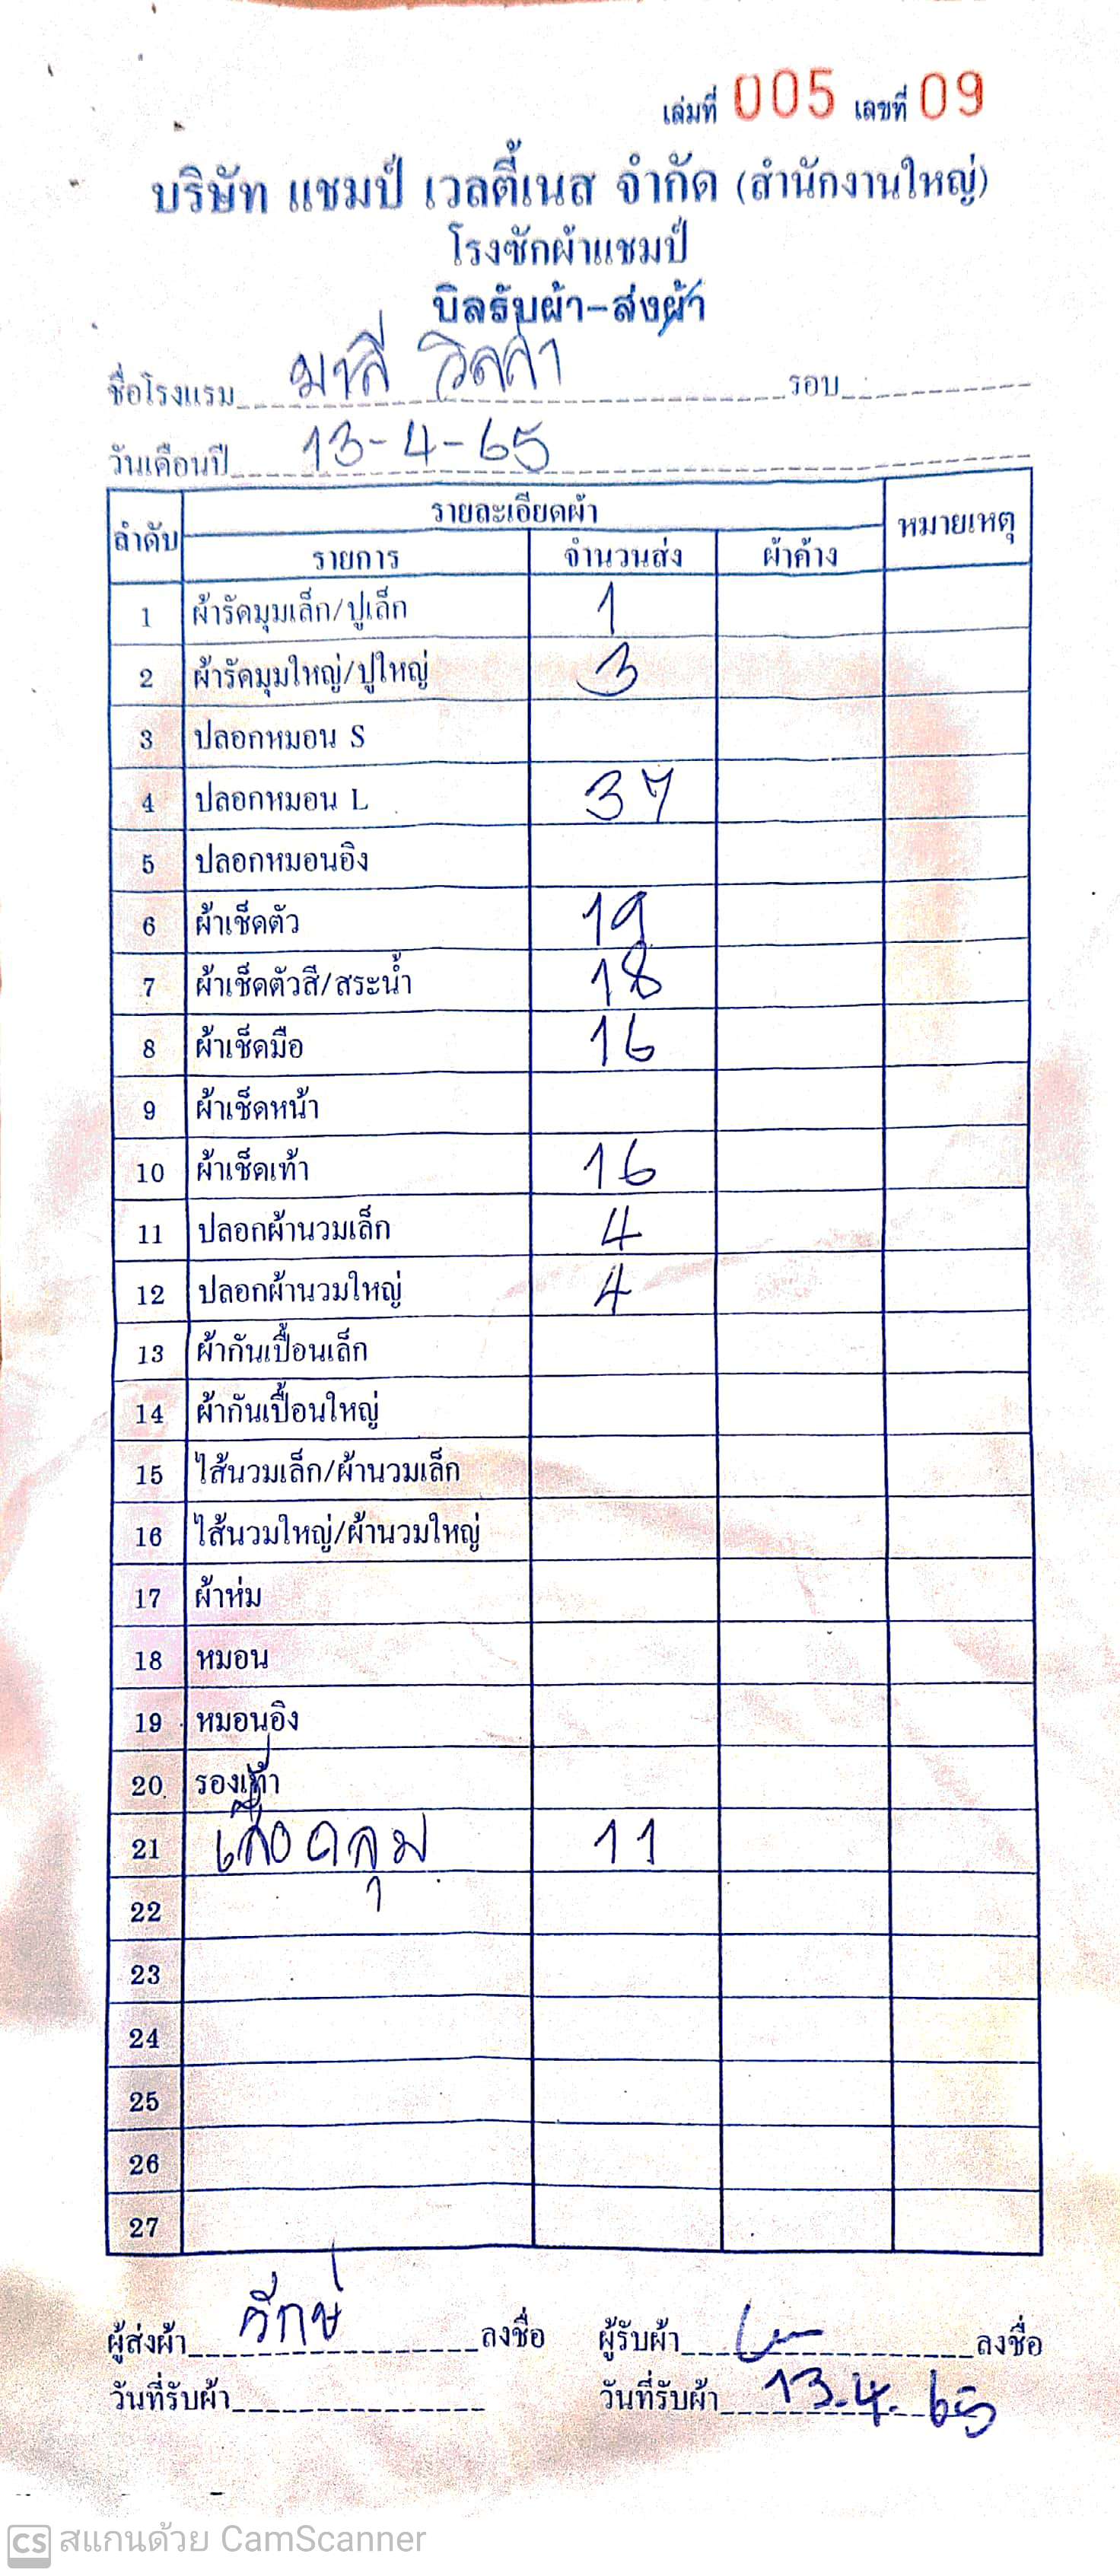 เล่มที่ 005 เลขที่ 09
บริษัท แชมป์ เวลตี้เนส จำกัด (สำนักงานใหญ่)
โรงซักผ้าแชมป์
บิลรับผ้า-ส่งผ้า
ชื่อโรงแรม มาลี วิลล่า รอบ
วันเดือนปี 13-4-65
ลำดับ รายละเอียดผ้า หมายเหตุ
รายการ จำนวนส่ง ผ้าค้าง
1 ผ้ารัดมุมเล็ก/ปูเล็ก 1
2 ผ้ารัดมุมใหญ่/ปูใหญ่ 3
3 ปลอกหมอน S
4 ปลอกหมอน L 37
5 ปลอกหมอนอิง
6 ผ้าเช็ดตัว 19
7 ผ้าเช็ดตัวสี/สระน้ำ 18
8 ผ้าเช็ดมือ 16
9 ผ้าเช็ดหน้า
10 ผ้าเช็ดเท้า 16
11 ปลอกผ้านวมเล็ก 4
12 ปลอกผ้านวมใหญ่ 4
13 ผ้ากันเปื้อนเล็ก
14 ผ้ากันเปื้อนใหญ่
15 ไส้นวมเล็ก/ผ้านวมเล็ก
16 ไส้นวมใหญ่/ผ้านวมใหญ่
17 ผ้าห่ม
18 หมอน
19 หมอนอิง
20 รองเท้า
21 เสื้อคลุม 11
22
23
24
25
26
27
ผู้ส่งผ้า ลงชื่อ ผู้รับผ้า ลงชื่อ
วันที่รับผ้า วันที่รับผ้า 13-4-65
CS สแกนด้วย CamScanner